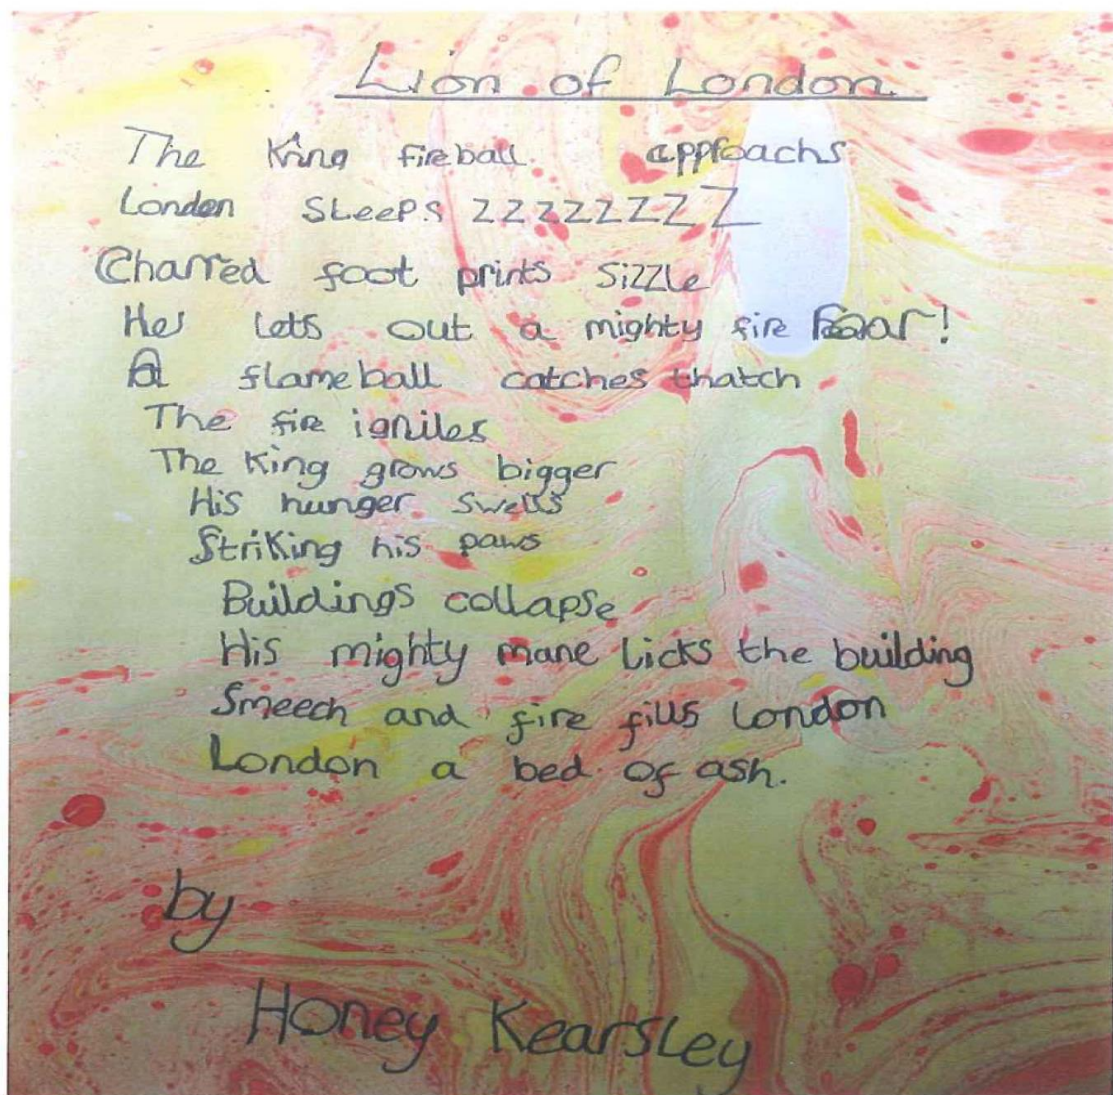 Lion of London
The King fireball approachs
London Sleeps zzzzzzzz
Charred foot prints sizzle
He lets out a mighty fire Roar!
A flameball catches thatch
The fire ignites
The King grows bigger
His hunger swells
Striking his paws
Buildings collapse
His mighty mane licks the building
Smeech and fire fills London
London a bed of ash.
by
Honey Kearsley